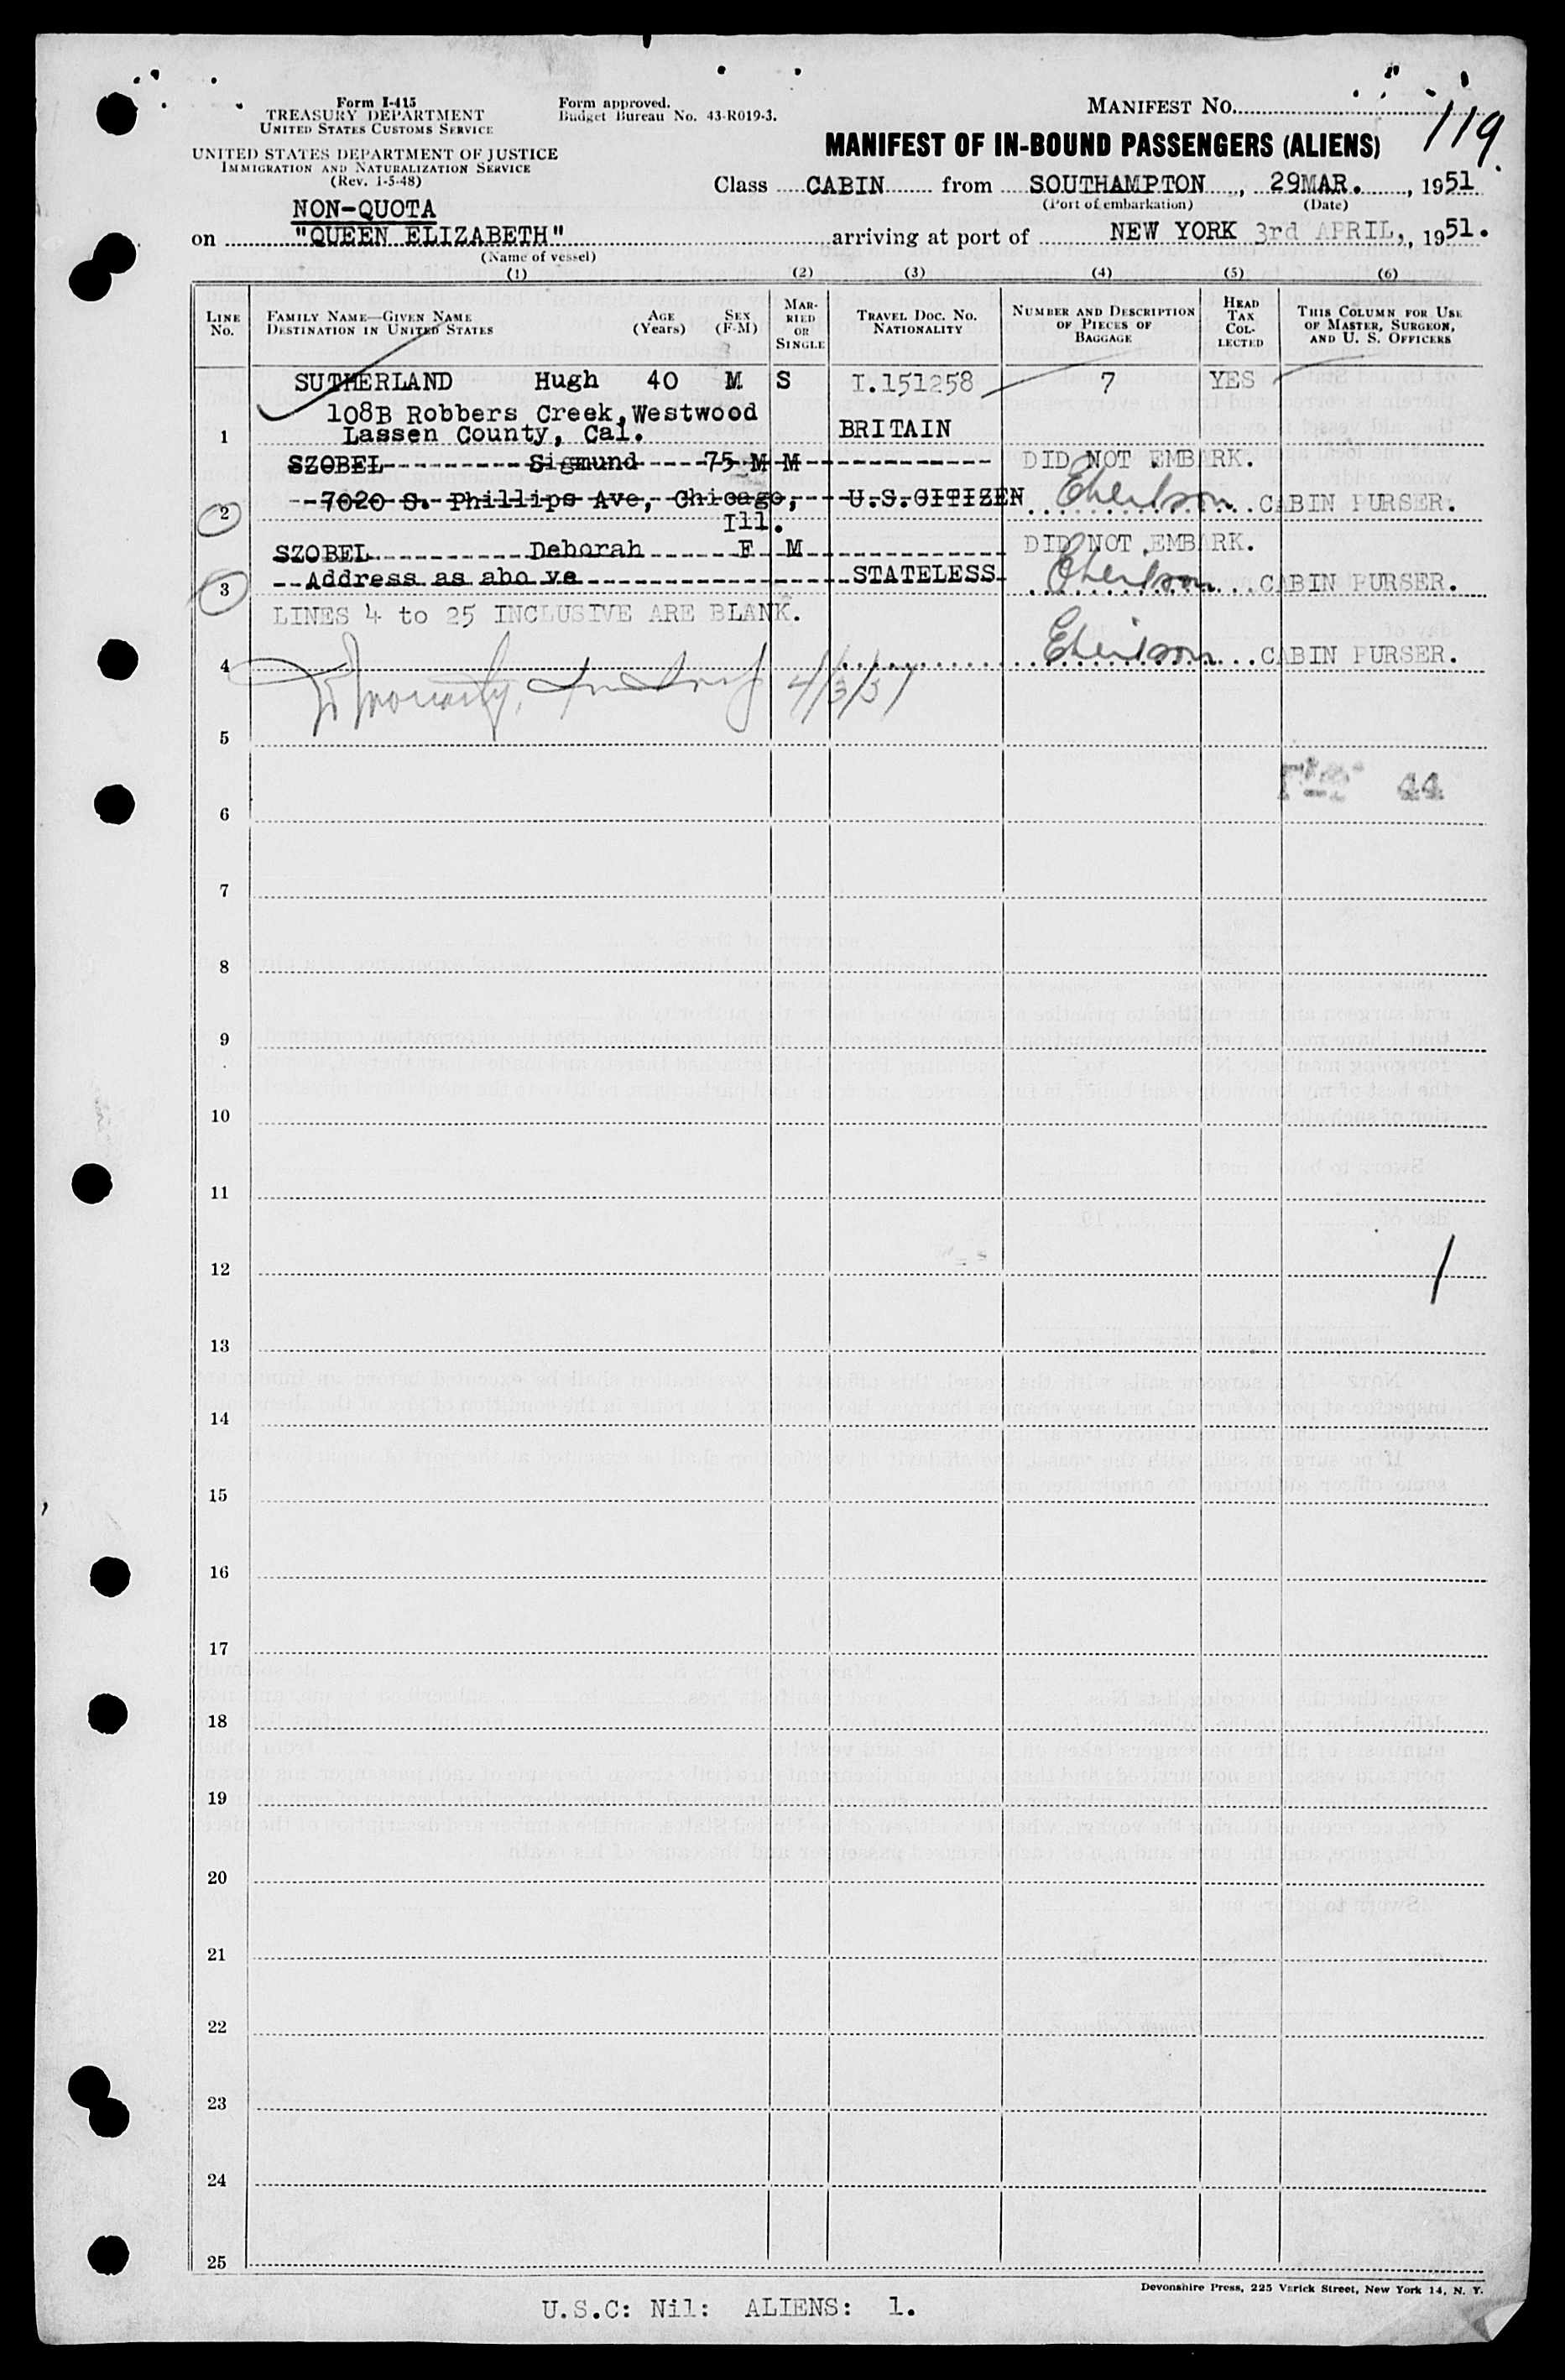 Form I-415
TREASURY DEPARTMENT
UNITED STATES CUSTOMS SERVICE
UNITED STATES DEPARTMENT OF JUSTICE
IMMIGRATION AND NATURALIZATION SERVICE
(Rev. 1-5-48)
Form approved.
Budget Bureau No. 43-R019-3.
MANIFEST No. 119
MANIFEST OF IN-BOUND PASSENGERS (ALIENS)
Class CABIN from SOUTHAMPTON, 29MAR., 1951
(Port of embarkation) (Date)
NON-QUOTA
on "QUEEN ELIZABETH" arriving at port of NEW YORK 3rd APRIL, 1951.
(Name of vessel)
(1) (2) (3) (4) (5) (6)
LINE No.
FAMILY NAME—GIVEN NAME
DESTINATION IN UNITED STATES
AGE (Years)
SEX (F-M)
MARRIED OR SINGLE
TRAVEL DOC. NO.
NATIONALITY
NUMBER AND DESCRIPTION OF PIECES OF BAGGAGE
HEAD TAX COLLECTED
THIS COLUMN FOR USE OF MASTER, SURGEON, AND U. S. OFFICERS
SUTHERLAND Hugh 40 M S I.151258 7 YES
108B Robbers Creek, Westwood
1 Lassen County, Cal. BRITAIN
SZOBEL Sigmund 75 M M DID NOT EMBARK.
2 7020 S. Phillips Ave, Chicago, U.S.CITIZEN CABIN PURSER.
Ill.
SZOBEL Deborah F M DID NOT EMBARK.
3 Address as above STATELESS CABIN PURSER.
LINES 4 to 25 INCLUSIVE ARE BLANK.
4 CABIN PURSER.
4/3/51
5
44
6
7
8
9
10
11
12
13
14
15
16
17
18
19
20
21
22
23
24
25
Devonshire Press, 225 Varick Street, New York 14, N. Y.
U.S.C: Nil: ALIENS: 1.